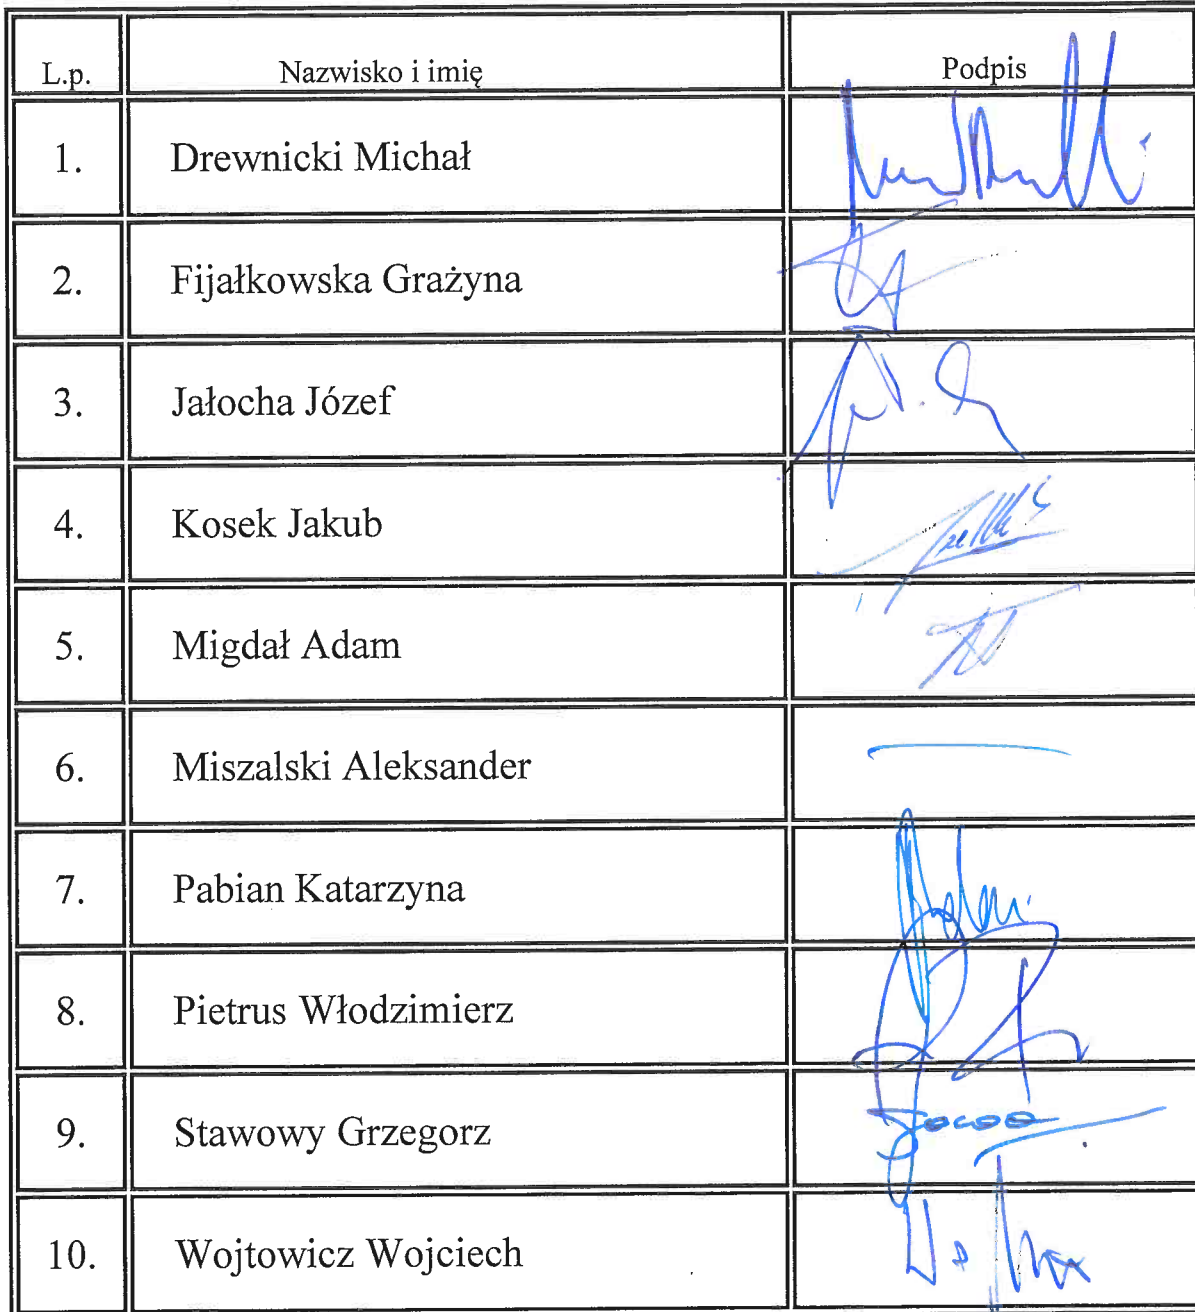 L.p. Nazwisko i imię Podpis
1. Drewnicki Michał
2. Fijałkowska Grażyna
3. Jałocha Józef
4. Kosek Jakub
5. Migdał Adam
6. Miszalski Aleksander
7. Pabian Katarzyna
8. Pietrus Włodzimierz
9. Stawowy Grzegorz
10. Wojtowicz Wojciech